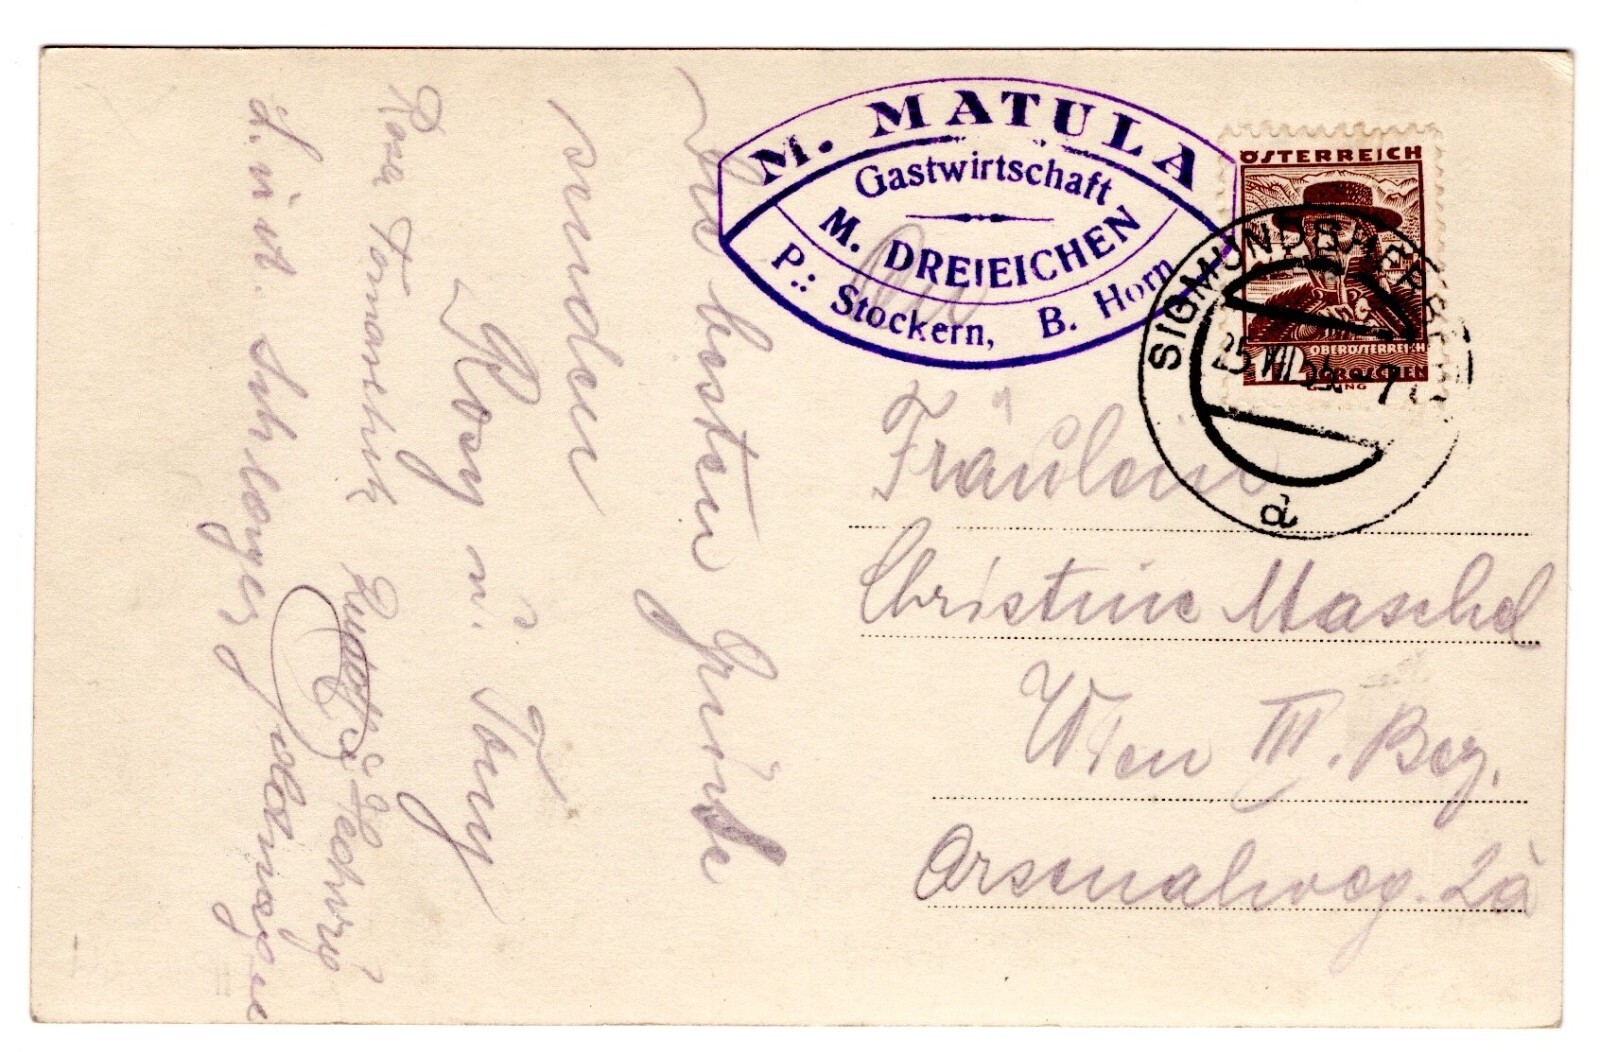 Die besten Grüsse
senden
Rosy u. Tony
Rosa
L. u. A.
M. MATULA
Gastwirtschaft
M. DREIEICHEN
P.: Stockern, B. Horn
An
Fräulein
Christine Maschel
Wien III. Bez.
Arsenalweg. 2a
ÖSTERREICH
OBERÖSTERREICH
GROSCHEN
SIGMUNDSHERBERG
25 VII 35 -7
a